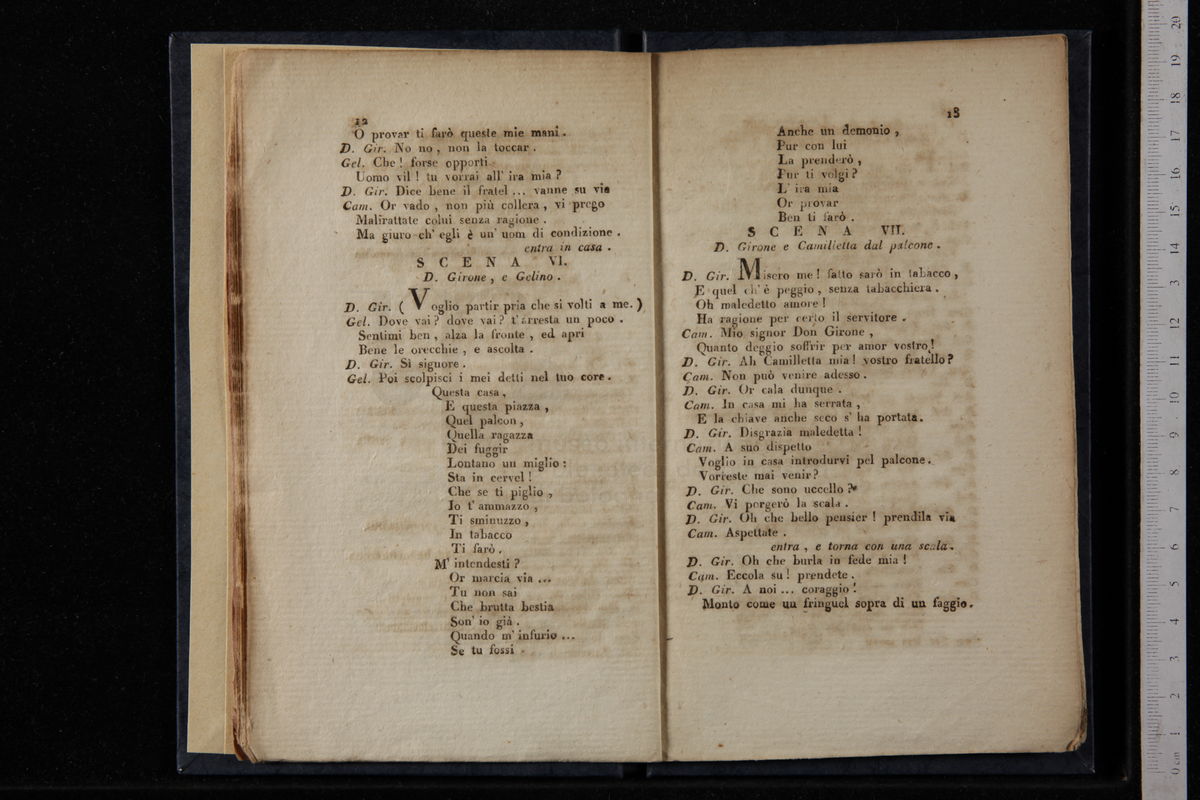 12
O provar ti farò queste mie mani .
D. Gir. No no , non la toccar .
Gel. Che ! forse opporti
Uomo vil ! tu vorrai all' ira mia ?
D. Gir. Dice bene il fratel ... vanne su via
Cam. Or vado , non più collera , vi prego
Maltrattate colui senza ragione .
Ma giuro ch' egli è un' uom di condizione .
entra in casa .
SCENA VI.
D. Girone , e Gelino .
D. Gir. ( Voglio partir pria che si volti a me. )
Gel. Dove vai ? dove vai ? t' arresta un poco .
Sentimi ben , alza la fronte , ed apri
Bene le orecchie , e ascolta .
D. Gir. Sì signore .
Gel. Poi scolpisci i mei detti nel tuo core .
Questa casa ,
E questa piazza ,
Quel palcon ,
Quella ragazza
Dei fuggir
Lontano un miglio :
Sta in cervel !
Che se ti piglio ,
Io t' ammazzo ,
Ti sminuzzo ,
In tabacco
Ti farò .
M' intendesti ?
Or marcia via ...
Tu non sai
Che brutta bestia
Son' io già .
Quando m' infurio ...
Se tu fossi
13
Anche un demonio ,
Pur con lui
La prenderò ,
Pur ti volgi ?
L' ira mia
Or provar
Ben ti farò .
SCENA VII.
D. Girone e Camilletta dal palcone .
D. Gir. Misero me ! fatto sarò in tabacco ,
E quel ch' è peggio , senza tabacchiera .
Oh maledetto amore !
Ha ragione per certo il servitore .
Cam. Mio signor Don Girone ,
Quanto deggio soffrir per amor vostro !
D. Gir. Ah Camilletta mia ! vostro fratello ?
Cam. Non può venire adesso .
D. Gir. Or cala dunque .
Cam. In casa mi ha serrata ,
E la chiave anche seco s' ha portata .
D. Gir. Disgrazia maledetta !
Cam. A suo dispetto
Voglio in casa introdurvi pel palcone .
Vorreste mai venir ?
D. Gir. Che sono uccello ?
Cam. Vi porgerò la scala .
D. Gir. Oh che bello pensier ! prendila via
Cam. Aspettate .
entra , e torna con una scala .
D. Gir. Oh che burla in fede mia !
Cam. Eccola su ! prendete .
D. Gir. A noi ... coraggio !
Monto come un fringuel sopra di un faggio .
0 cm 1 2 3 4 5 6 7 8 9 10 11 12 13 14 15 16 17 18 19 20